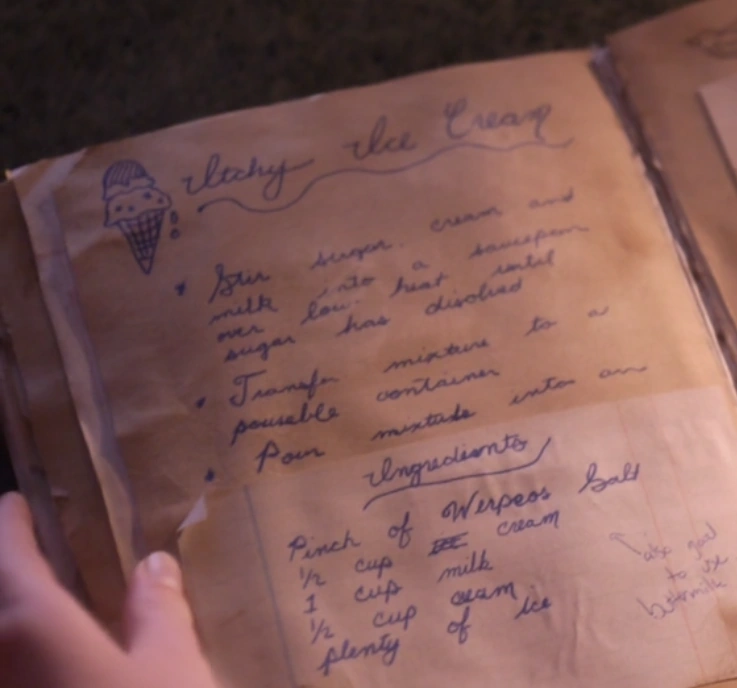 Itchy Ice Cream
• Stir sugar, cream and
milk into a saucepan
over low heat until
sugar has disolved
• Transfer mixture to a
pourable container
• Pour mixture into an
Ingredients
Pinch of Werpeos Salt
1/2 cup cream
1 cup milk
1/2 cup cream
plenty of ice
also good
to use
buttermilk